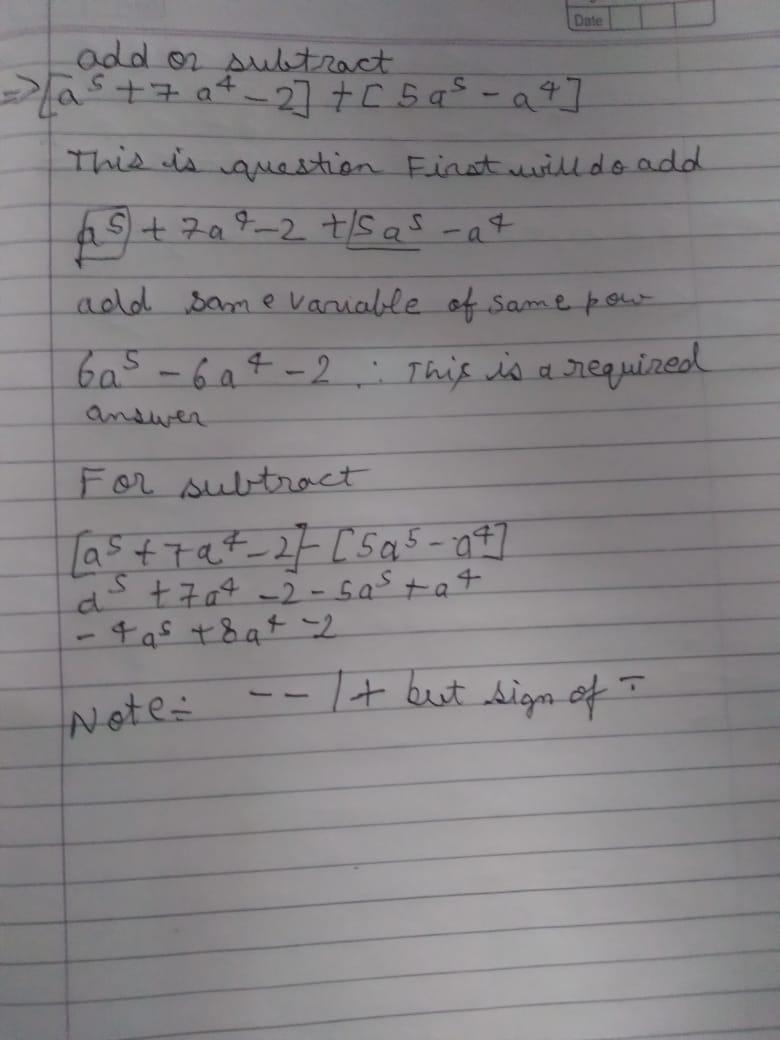 Date
add or subtract
⇒ [a⁵ + 7a⁴ - 2] + [5a⁵ - a⁴]
This is question First will do add
a⁵ + 7a⁴ - 2 + 5a⁵ - a⁴
add same variable of same pow
6a⁵ - 6a⁴ - 2 ∴ This is a required
answer
For subtract
[a⁵ + 7a⁴ - 2] - [5a⁵ - a⁴]
a⁵ + 7a⁴ - 2 - 5a⁵ + a⁴
- 4a⁵ + 8a⁴ - 2
Note÷ - - / + but sign of -